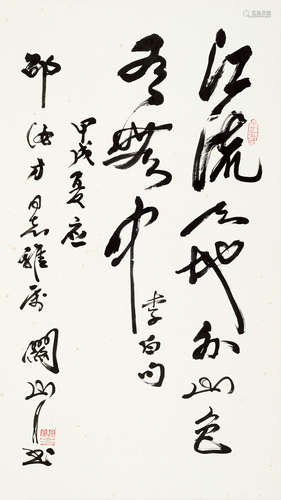 江流天地外山色
有無中
李白句
甲戌夏应
邵才同志雅属 關山月